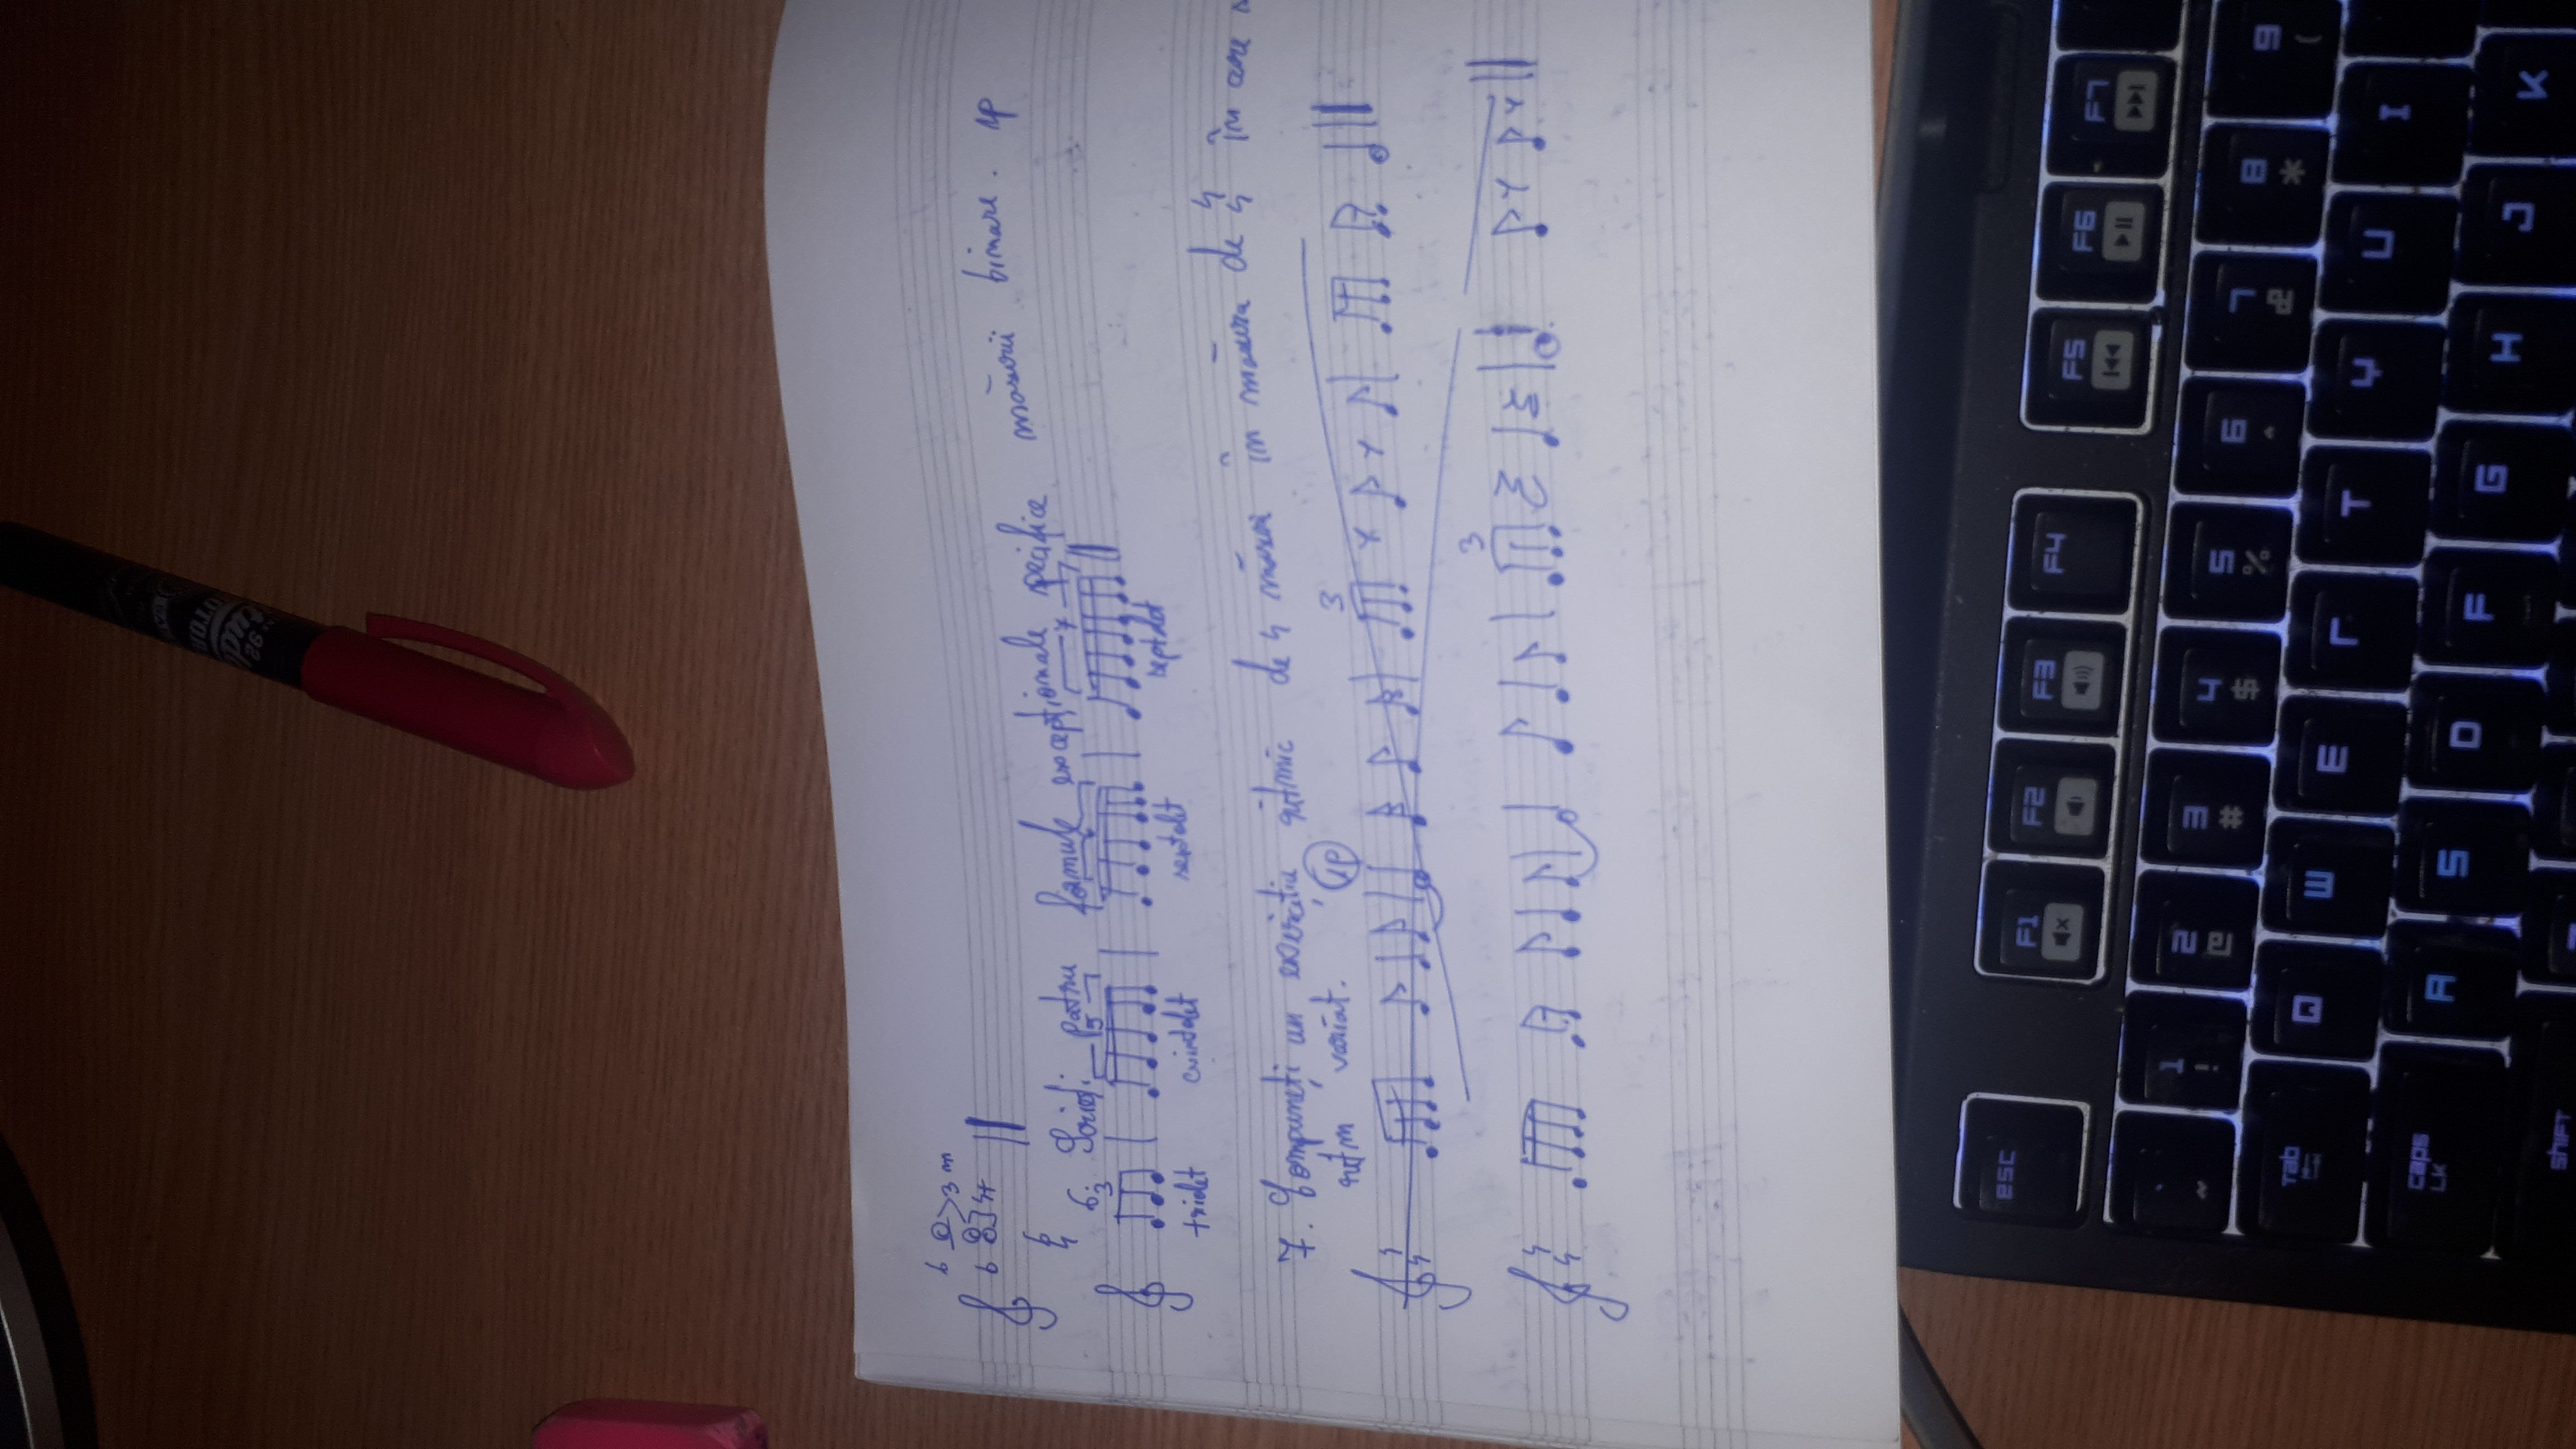 b
3 m
b
4+
6. Scrieți patru formule excepționale specifice măsurii binare. 1p
3
5
6
7
triolet
cvintolet
sextolet
septolet
7. Compuneți un exercițiu ritmic de 4 măsuri în măsura de 4 4 în care
ritm variat. 1p
4 4
3
4 4
3
esc
F1
F2
F3
F4
F5
F6
F7
~
1 !
2 @
3 #
4 $
5 %
6 ^
7
8 *
9 (
Tab
Q
W
E
T
Y
U
I
caps LK
A
S
D
F
G
H
J
K
shift